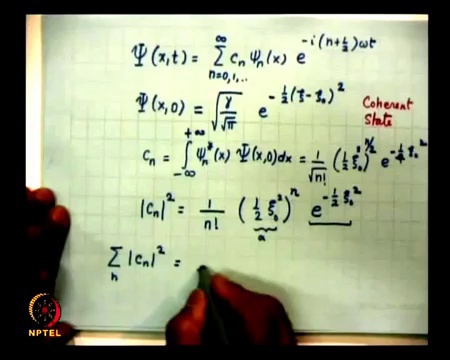 Ψ(x,t) = ∑_{n=0,1,..}^{∞} c_n ψ_n(x) e^{-i(n+½)ωt}
Ψ(x,0) = √(γ/√π) e^{-½(ξ-ξ₀)²} Coherent State
c_n = ∫_{-∞}^{+∞} ψ_n*(x) Ψ(x,0)dx = 1/√n! (½ξ₀²)^{n/2} e^{-¼ξ₀²}
|c_n|² = 1/n! (½ξ₀²)^n e^{-½ξ₀²}
a
∑_n |c_n|² =
NPTEL